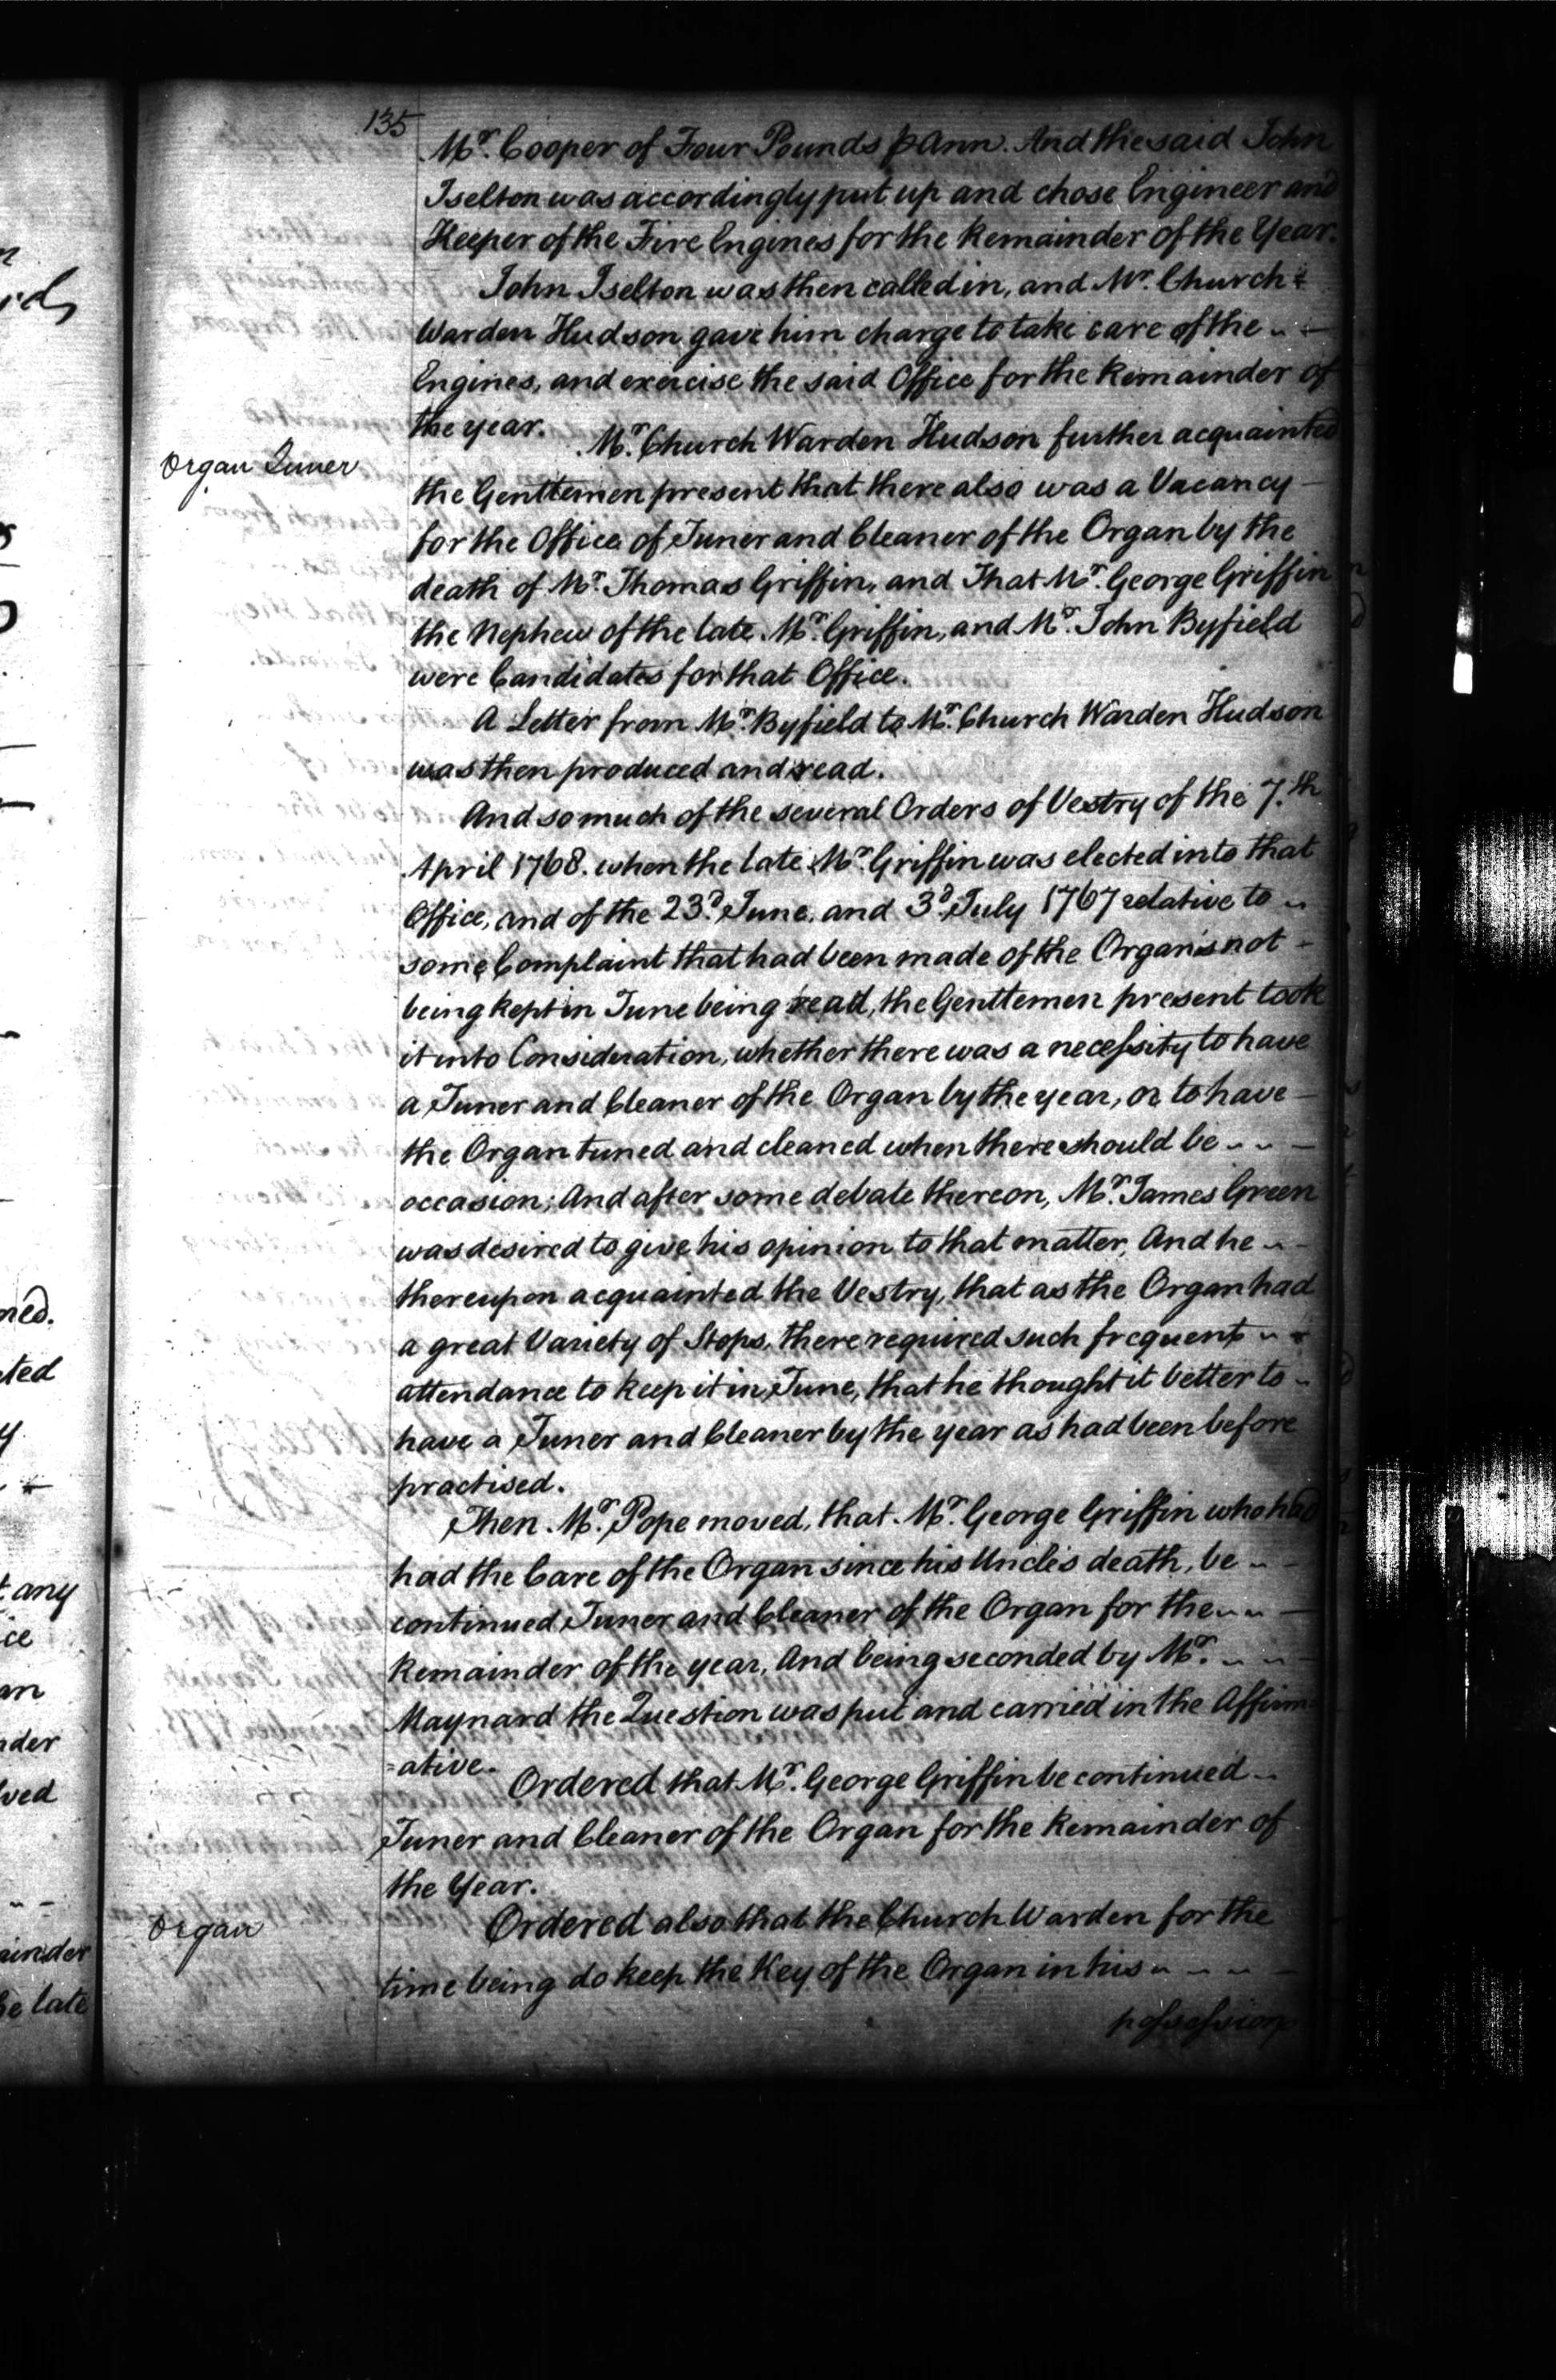 135
Mr. Cooper of Four Pounds p Ann. And the said John
Iselton was accordingly put up and chose Engineer and
Keeper of the Fire Engines for the Remainder of the Year.
John Iselton was then called in, and Mr. Church =
Warden Hudson gave him charge to take care of the
Engines, and exercise the said Office for the Remainder of
the year.
Organ Tuner
Mr. Church Warden Hudson further acquainted
the Gentlemen present that there also was a Vacancy
for the Office of Tuner and Cleaner of the Organ by the
death of Mr. Thomas Griffin, and That Mr. George Griffin
the Nephew of the late Mr. Griffin, and Mr. John Byfield
were Candidates for that Office.
A Letter from Mr. Byfield to Mr. Church Warden Hudson
was then produced and read.
And so much of the several Orders of Vestry of the 7.th
April 1768. when the late Mr. Griffin was elected into that
Office, and of the 23d. June, and 3d. July 1767 relative to
some Complaint that had been made of the Organ's not
being kept in Tune being read, the Gentlemen present took
it into Consideration, whether there was a necessity to have
a Tuner and Cleaner of the Organ by the year, or to have
the Organ tuned and cleaned when there should be
occasion; And after some debate thereon, Mr. James Green
was desired to give his opinion to that matter, And he
thereupon acquainted the Vestry, that as the Organ had
a great Variety of Stops, there required such frequent
attendance to keep it in Tune, that he thought it better to
have a Tuner and Cleaner by the year as had been before
practised.
Then Mr. Pope moved, that Mr. George Griffin who had
had the Care of the Organ since his Uncle's death, be
continued Tuner and Cleaner of the Organ for the
Remainder of the year, And being seconded by Mr.
Maynard the Question was put and carried in the Affirm=
=ative.
Ordered that Mr. George Griffin be continued
Tuner and Cleaner of the Organ for the Remainder of
the Year.
Organ
Ordered also that the Church Warden for the
time being do keep the Key of the Organ in his
possession